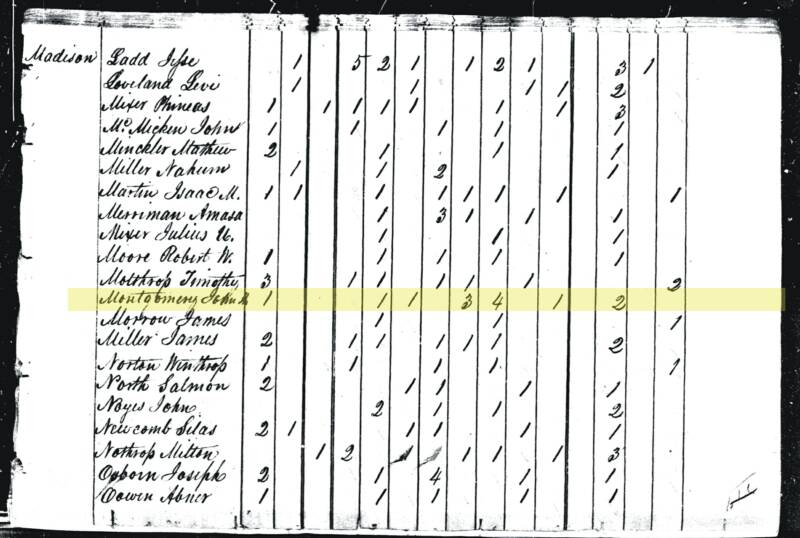 Madison Ladd Jesse 1 5 2 1 1 2 1 3 1
Loveland Levi 1 1 1 1 2
Mixer Phineas 1 1 1 1 1 1 1 3
Mc Micken John 1 1 1 1 1
Minckler Mathew 2 1 1 1
Miller Nahum 1 1 2 1
Martin Isaac M. 1 1 1 1 1 1 1 1
Merriman Amasa 1 3 1 1 1 1
Mixer Julius U. 1 1 1
Moore Robert W. 1 1 1 1 1
Molthrop Timothy 3 1 1 1 1 1 2
Montgomery John 1 1 1 3 4 1 2
Morrow James 1 1 1
Miller James 2 1 1 1 1 1 2
Norton Winthrop 1 1 1 1 1
North Salmon 2 1 1 1 1
Noyes John 2 1 1 2
Newcomb Silas 2 1 1 1 1 1
Nothrop Milton 1 2 1 1 1 1 1 3
Osborn Joseph 2 1 4 1 1
Owen Abner 1 1 1 1 1